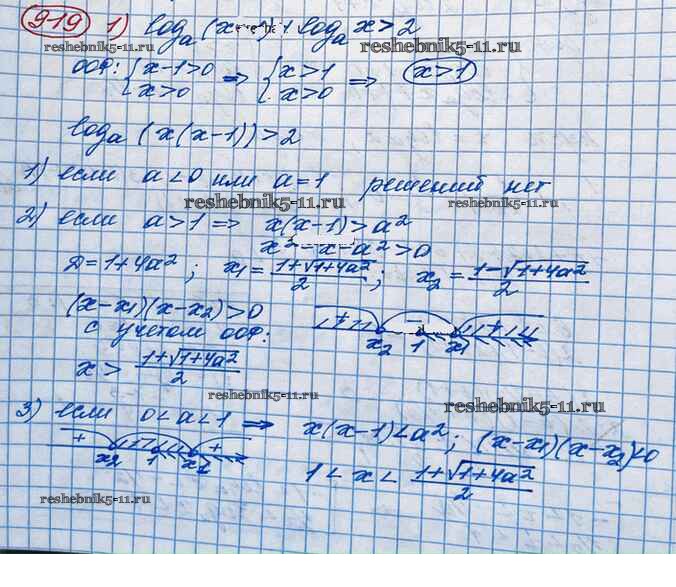 919 1) log_a (x-1) + log_a x > 2
reshebnik5-11.ru
ООФ: { x-1>0 x>0 => { x>1 x>0 => x>1
log_a (x(x-1)) > 2
1) если a<0 или a=1 решений нет
reshebnik5-11.ru
2) если a>1 => x(x-1) > a²
x² - x - a² > 0
D=1+4a²; x₁ = (1+√1+4a²)/2; x₂ = (1-√1+4a²)/2
(x-x₁)(x-x₂)>0
с учетом ООФ:
+ - +
x₂ 1 x₁
x > (1+√1+4a²)/2
reshebnik5-11.ru
3) если 0<a<1 => x(x-1)<a²; (x-x₁)(x-x₂)<0
+ - +
x₂ 1 x₁
1 < x < (1+√1+4a²)/2
reshebnik5-11.ru